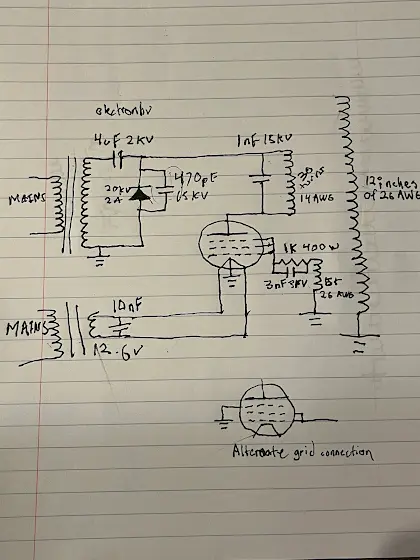 electronbv
4uF 2KV
1nF 15KV
MAINS
20KV
2A
470pF
15KV
30
turns
14 AWG
12 inches
of 26 AWG
1K 400W
3nF 3KV
15t
26 AWG
MAINS
10nF
12.6V
Alternate grid connection